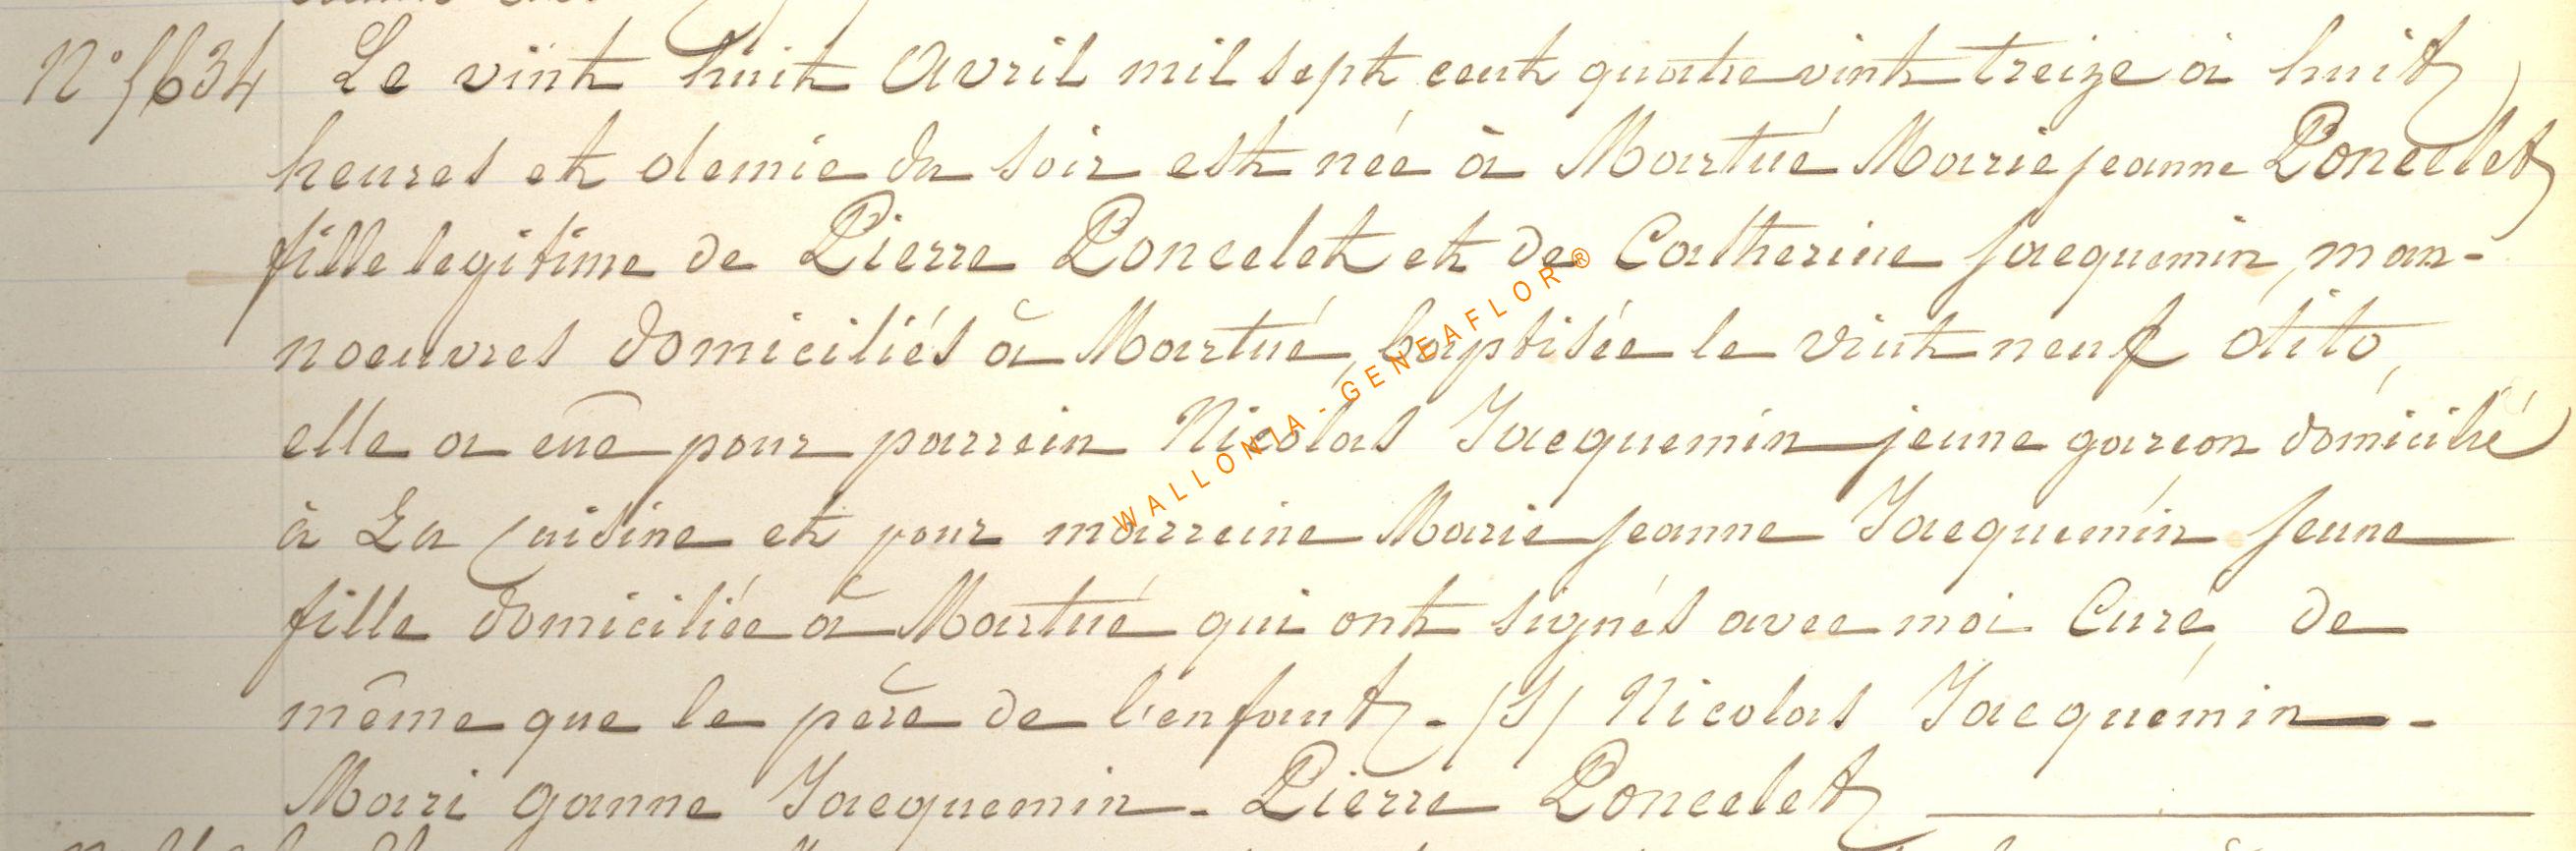 N° 5634 Le vint huit Avril mil sept cent quatre vint treize à huit
heures et demie du soir est née à Martué Marie jeanne Poncelet
fille legitime de Pierre Poncelet et de Catherine Jacquemin, man-
noeuvres domiciliés à Martué, baptisée le vint neuf dito,
elle a eue pour parrein Nicolas Jacquemin jeune garcon domicilié
à La cuisine et pour marreine Marie Jeanne Jacquemin Jeune
fille domiciliée à Martué qui ont signés avec moi Curé, de
même que le père de l'enfant. (S) Nicolas Jacquemin -
Mari ganne Jacquemin - Pierre Poncelet
WALLONIA - GENEAFLOR ®